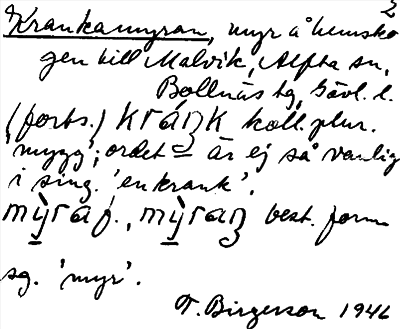 2
Krankamyran, myr å hemsko
gen till Malvik, Alfta sn,
Bollnäs tg, Gävl. l.
(forts.) kráŋk koll. plur.
'mygg'; ordet = är ej så vanlig
i sing. 'en krank'.
mỳra f., mỳraŋ best. form
sg. 'myr'.
T. Birgerson 1946